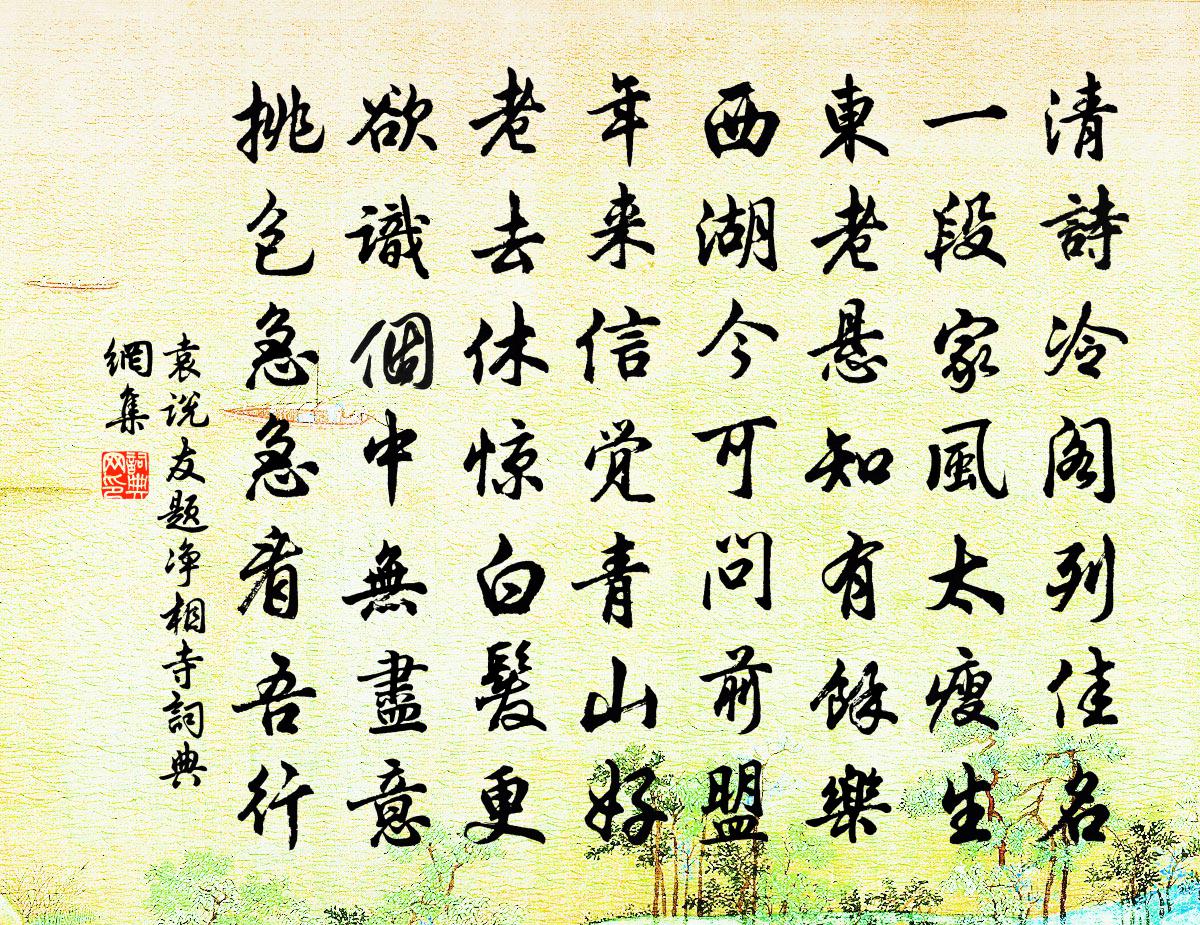 清詩冷阁列佳名
一段家風太瘦生
東老悬知有餘樂
西湖今可问前盟
年来信觉青山好
老去休惊白髮更
欲識個中無盡意
挑包急急看吾行
袁说友题净相寺詞典
網集
詞典网印